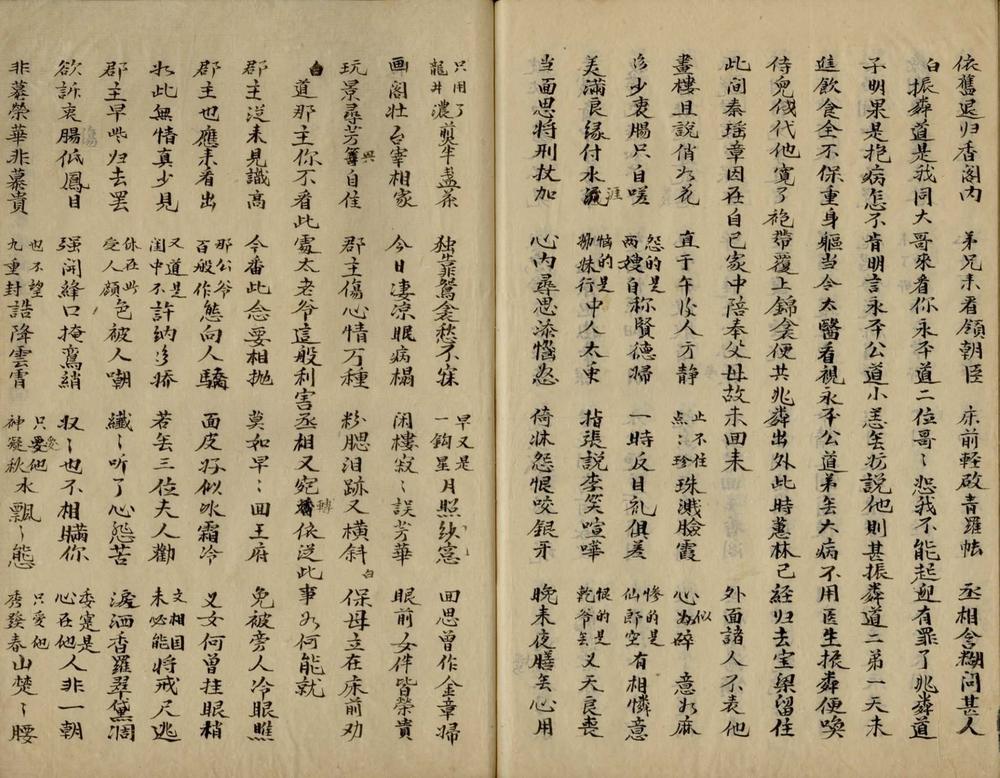 依舊退归香阁内　弟兄未看領朝臣　床前輕啟青羅帐　丞相含糊问甚人
白振舜道是我同大哥來看你永平道二位哥〻恕我不能起迎有罪了兆舜道
子明果是抱病怎不肯明言永平公道小恙无妨说他则甚振舜道二弟一天未
進飲食全不保重身軀当令太醫看視永平公道弟无大病不用医生振舜便喚
侍兒伐代他寬了袍帶覆上錦衾便共兆舜出外此时蕙林已経归去宝梁留住
此间秦瑶章因在自己家中陪奉父母故未回來　外面諸人不表他
畫樓且説俏如花　直于午後人方静　止不住点〻珍珠溅臉霞　心为似碎　意如麻
少衷腸只自嗟　怨的是两嫂自称賢德婦　一时反目乱俱差　惨的是仙郎空有相憐意
美滿良缘付水涯　惱的是妯娣行中人太東　指張説李笑喧嘩　恨的是乾爷无义天良喪
当面思将刑杖加　心内尋思添惱忿　倚床怨恨咬銀牙　晚来夜膳无心用
只用了龍井濃煎半盏茶　独靠鴛衾愁不寐　早又是一鈎星月照紗窓　回思曾作金章婦
画阁壮台宰相家　今日凄凉眠病榻　闲樓寂〻誤芳華　眼前女伴皆榮貴
玩景尋芳兴自佳　郡主傷心情万種　粉腮泪跡又横斜　白保母立在床前劝
白道那主你不看此處太老爷這般利害丞相又宛轉依從此事如何能就
郡主從未見識高　今番此念要相抛　莫如早〻回王府　免被旁人冷眼瞧
郡主也應未看出　那公爷百般作態向人驕　面皮好似氷霜冷　义女何曾挂眼稍
如此無情真少見　又道是闺中不許纳娇　若无三位夫人勸　文相国未必能将戒尺逃
郡主早些归去罢　休在此受人顔色被人嘲　纖〻听了心怨苦　淚洒香羅翠黛凋
欲訴衷腸低鳳目　强開絳口掩鸞綃　収〻也不相瞞你　委寔是心在他人非一朝
非慕榮華非慕貴　也不望九重封誥降雲霄　只愛他神凝秋水飄〻態　只爱他秀發春山楚〻腰